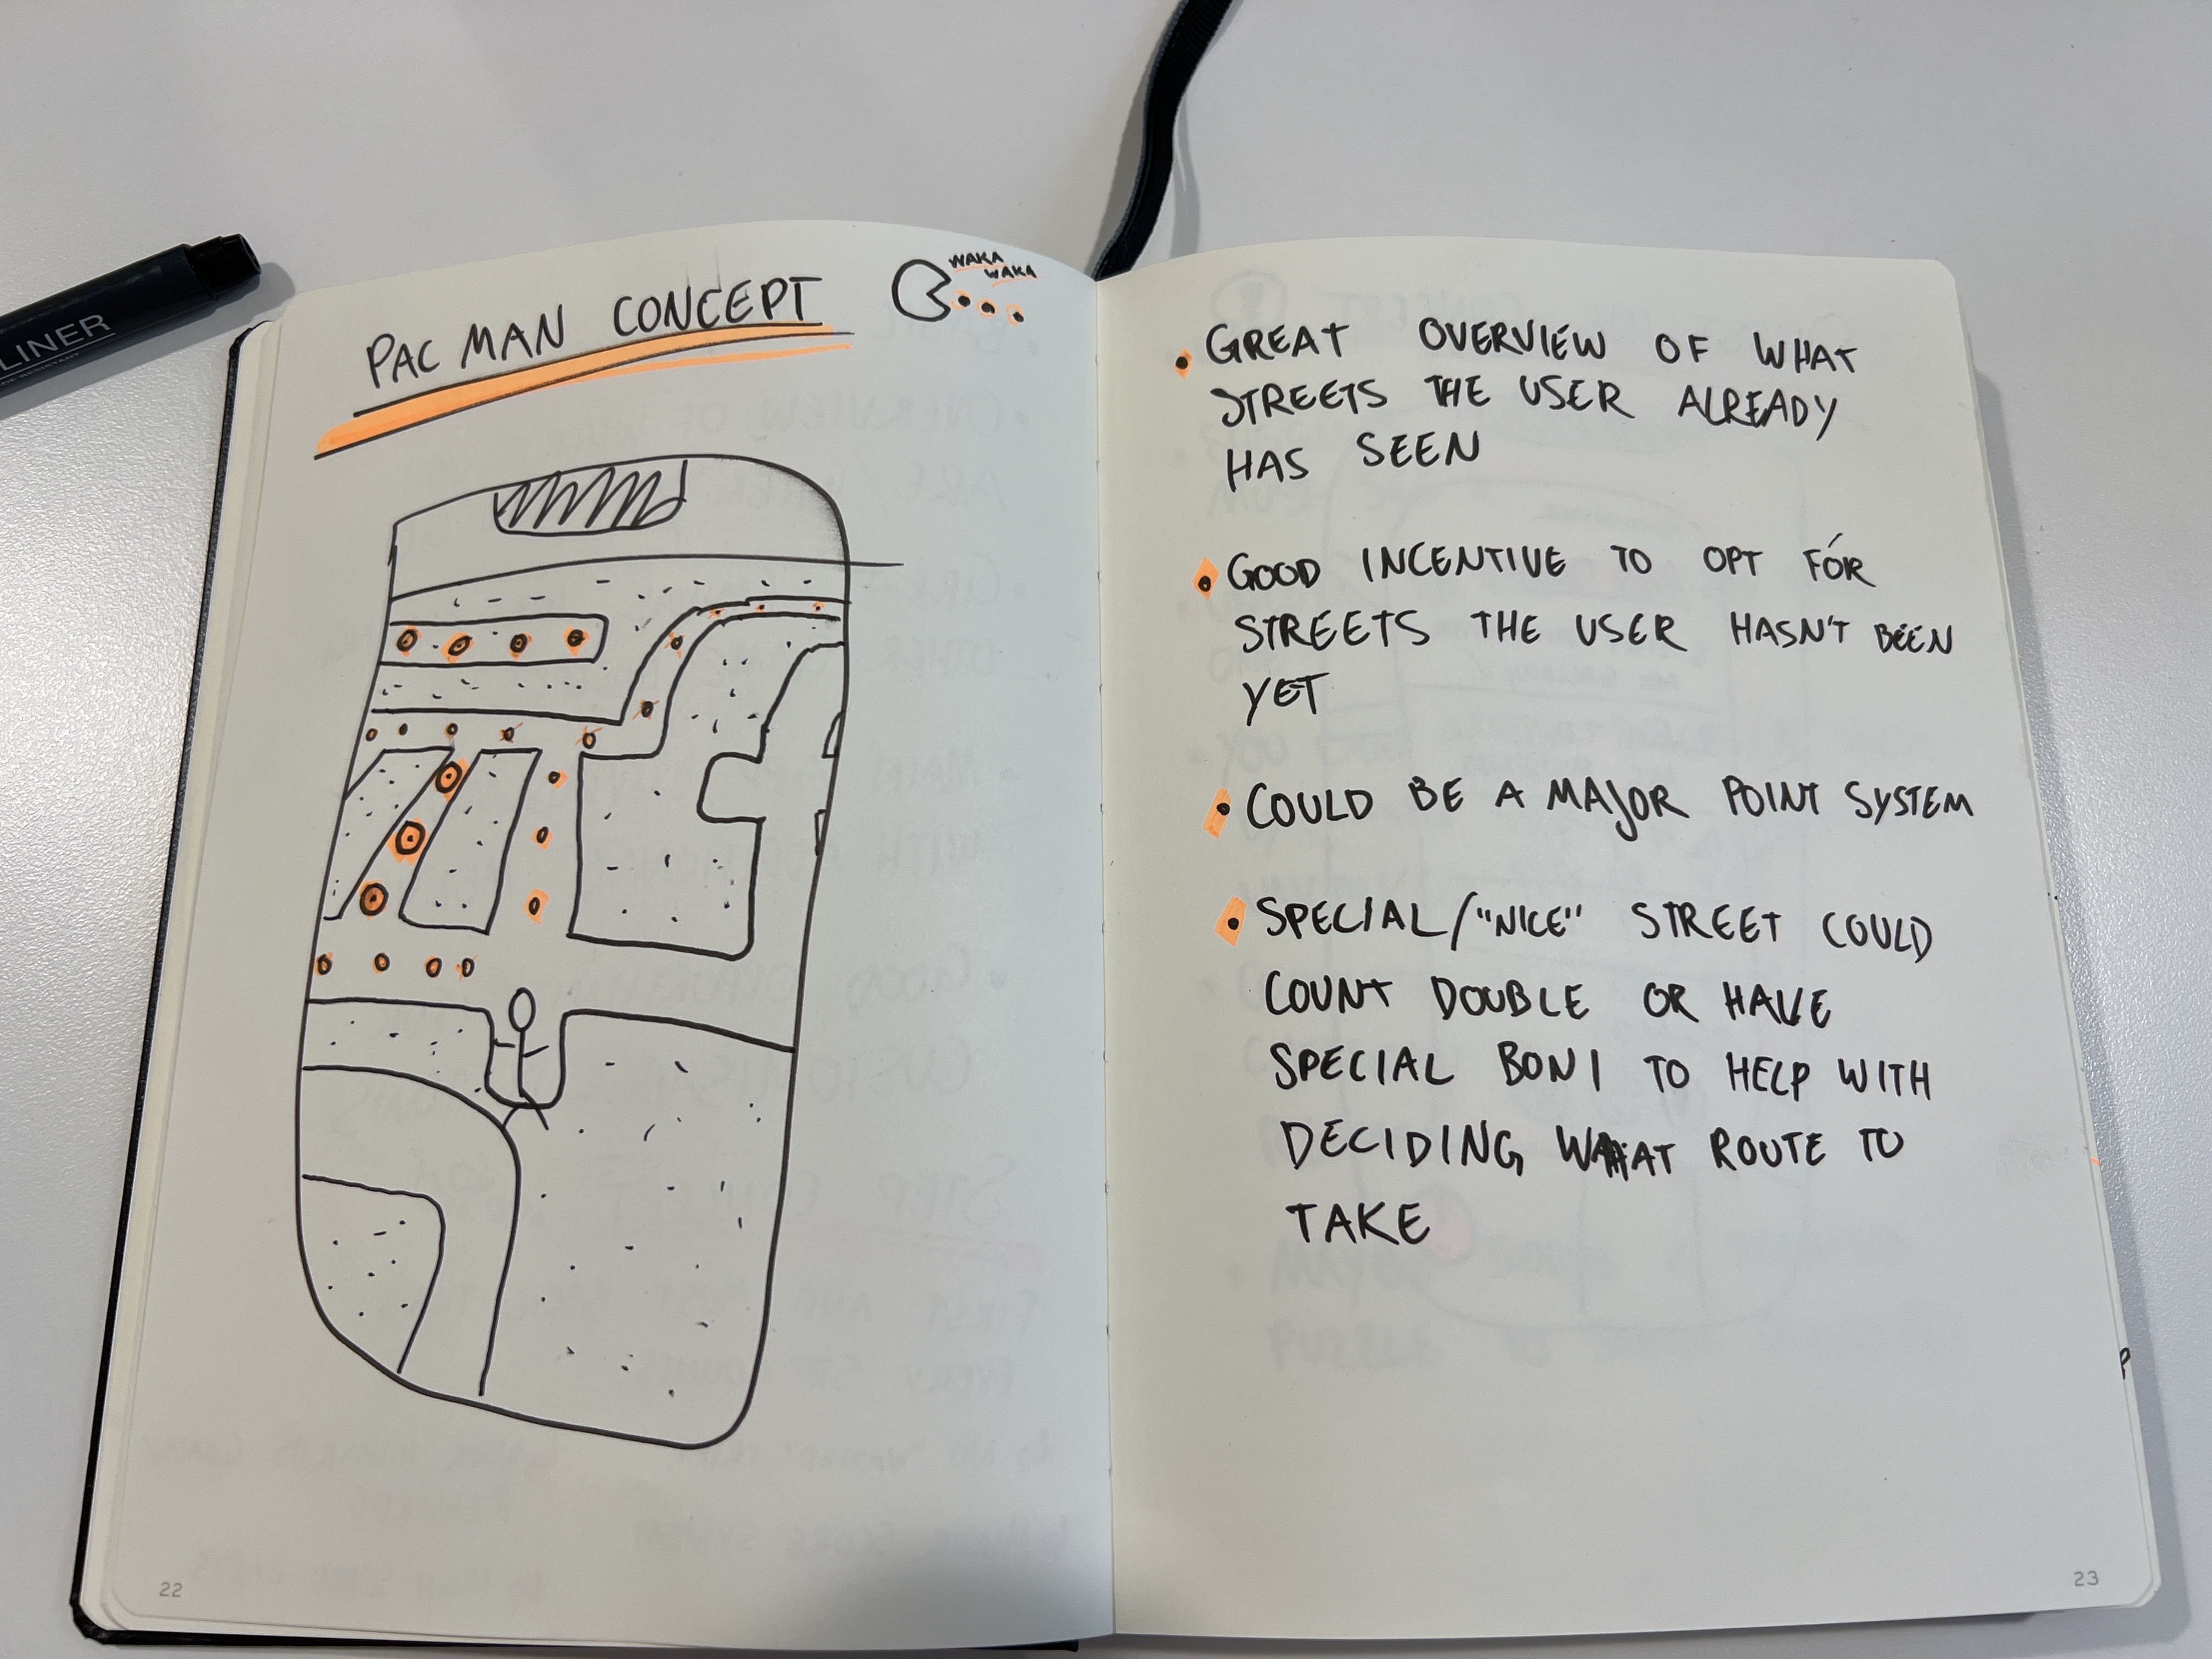 LINER
PAC MAN CONCEPT
WAKA
WAKA
22
• GREAT OVERVIEW OF WHAT
STREETS THE USER ALREADY
HAS SEEN
• GOOD INCENTIVE TO OPT FOR
STREETS THE USER HASN'T BEEN
YET
• COULD BE A MAJOR POINT SYSTEM
• SPECIAL/"NICE" STREET COULD
COUNT DOUBLE OR HAVE
SPECIAL BONI TO HELP WITH
DECIDING WHAT ROUTE TO
TAKE
23